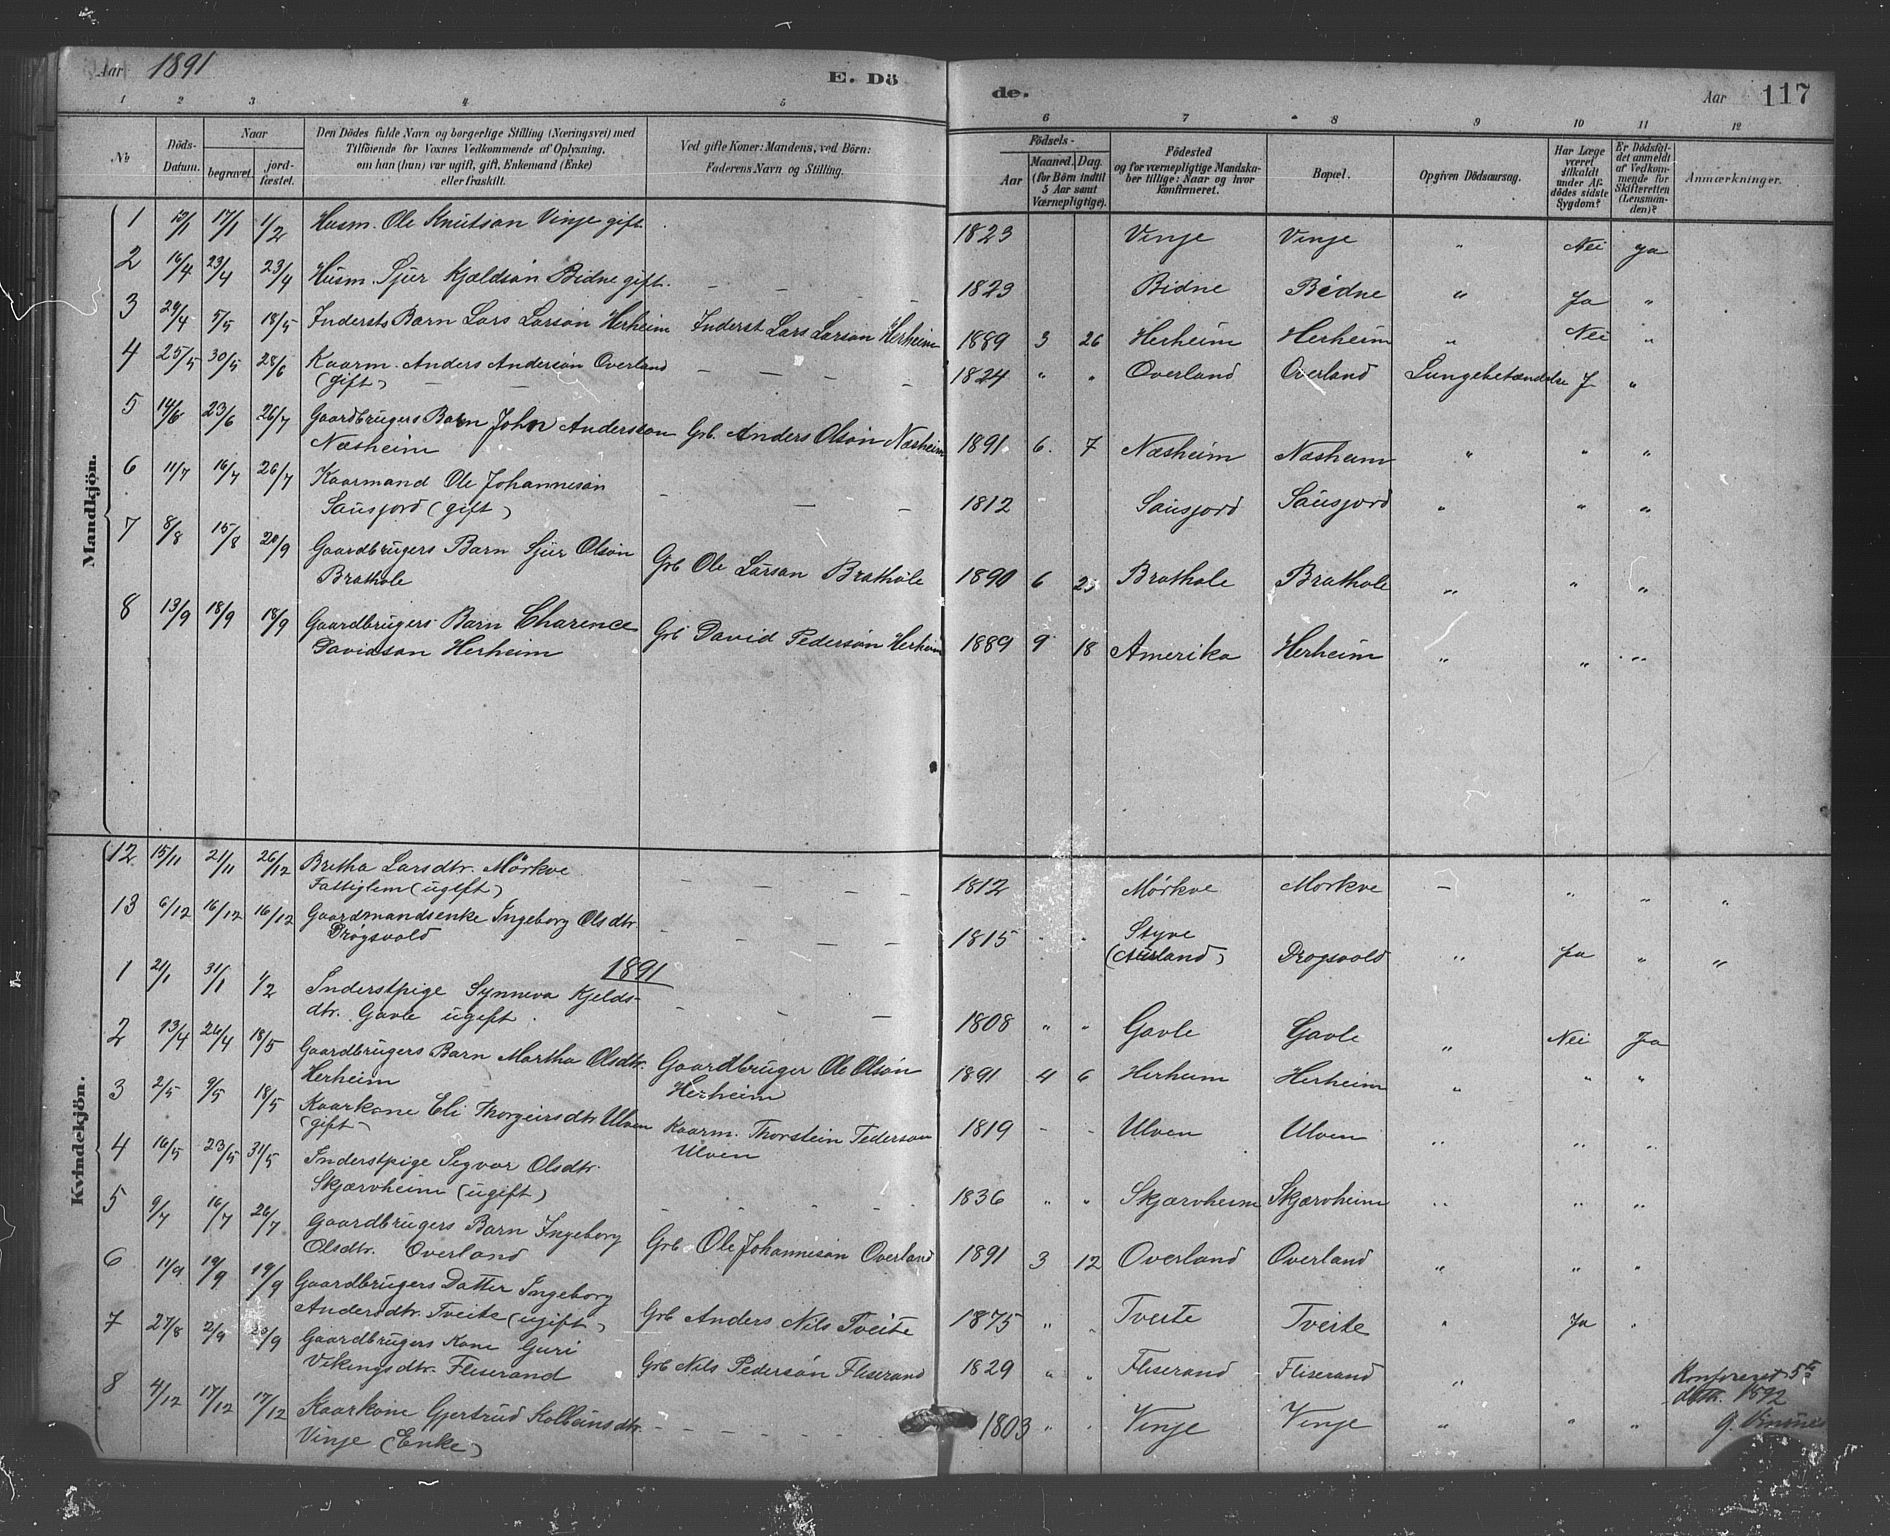 Aar 1891 E. Dö de. Aar 117
1 2 3 4 5 6 7 8 9 10 11 12
№ Döds-Datum. Naar begravet. jord-fæstet. Den Dödes fulde Navn og borgerlige Stilling (Næringsvei) med Tilföiende for Voxnes Vedkommende af Oplysning, om han (hun) var ugift, gift, Enkemand (Enke) eller fraskilt. Ved gifte Koner: Mandens, ved Börn: Faderens Navn og Stilling. Födsels- Aar Maaned. Dag. (for Börn indtil 5 Aar samt Værnepligtige). Födested og for værnepligtige Mandskaber tillige: Naar og hvor konfirmeret. Bopæl. Opgiven Dödsaarsag. Har Læge været tilkaldt under Afdödes sidste Sygdom? Er Dödsfaldet anmeldt af Vedkommende for Skifteretten (Lensmanden)? Anmærkninger.
Mandkjön.
1 12/1 17/1 1/2 Husm. Ole Knutson Vinje gift. 1823 Vinje Vinje " Nei ja
2 16/4 23/4 23/4 Husm. Sjur Kjældsön Bidne gift. — — — 1829 Bidne Bidne " Ja "
3 29/4 5/5 18/5 Indersts Barn Lars Larsön Herheim Inderst Lars Larson Herheim 1889 3 26 Herheim Herheim " Nei "
4 25/5 30/5 28/6 Kaarm. Anders Andersön Overland — — — 1824 " " Overland Overland Lungebetændelse J "
(gift) — —
5 14/6 23/6 26/7 Gaardbrugers Barn John Anderson Grb. Anders Olsön Næsheim 1891 6. 7 Næsheim Næsheim " " "
Næsheim
6 11/7 16/7 26/7 Kaarmand Ole Johannesön — — — 1812 Sausjord Sausjord " " "
Sausjord (gift)
7 8/8 15/8 20/9 Gaardbrugers Barn Sjur Olsön Grb Ole Larson Brathole 1890 6 23 Brathole Brathole " " "
Brathole
8 13/9 18/9 18/9 Gaardbrugers Barn Charence Grb David Pedersön Herheim 1889 9 18 Amerika Herheim " " "
Davidson Herheim
Kvindekjön.
12 15/11 21/11 26/12 Bretha Larsdtr. Mörkve — — — — 1812 Mörkve Morkve — " " "
Fattiglem (ugift)
13 6/12 16/12 16/12 Gaardmandsenke Ingeborg Olsdtr. — — — — 1815 " " Styve (Aurland) Drogsvold " Ja " "
Drögsvold
1891
1 21/1 31/1 1/2 Inderstpige Synneva Kjelds- — — — — 1808 " " Gavle Gavle " Nei Ja
dtr. Gavle ugift.
2 13/4 24/4 18/5 Gaardbrugers Barn Martha Olsdtr. Gaardbruger Ole Olsön 1891 4 6 Herheim Herheim " " "
Herheim Herheim
3 2/5 9/5 18/5 Kaarkone Eli Thorgeirsdtr Ulven Kaarm. Thorstein Pederson 1819 - - Ulven Ulven " " "
(gift) Ulven
4 16/5 23/5 31/5 Inderstpige Segvor Olsdtr. 1836 " " Skjærvheim Skjærvheim " " "
Skjærvheim (ugift)
5 9/7 16/7 26/7 Gaardbrugers Barn Ingeborg Grb Ole Johannesön Overland 1891 3 12 Overland Overland " " "
Olsdtr. Overland
6 11/9 19/9 19/9 Gaardbrugers Datter Ingeborg Grb Anders Nils Tveite 1875 " " Tveite Tveite " Ja "
Andersdtr. Tveite (ugift)
7 27/8 2/9 /9 Gaardbrugers Kone Guri Grb Nils Pedersön Fliserand 1829 " " Fliserand Fliserand "
Vikingsdtr. Fliserand
8 4/12 17/12 17/12 Kaarkone Gjertrud Kolbeinsdtr. — — — — 1803 " " Vinje Vinje " " "
Vinje (Enke)
Konfereret 5te
1892